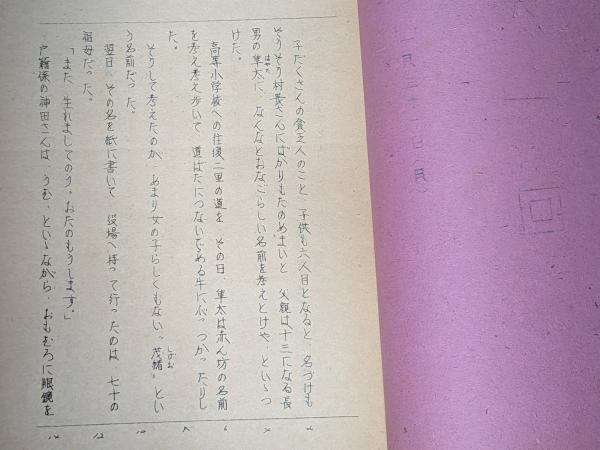 子だくさんの貧乏人のこと、子供も六人目となると、名づけも
そうそう村長さんにばかりもたのめまいと、父親は十三になる長
男の隼太に、なんなとおなごらしい名前を考えとけや、といいつ
はやた
けた。
高等小学校への往復二里の道を、その日、隼太は赤ん坊の名前
を考え考え歩いて、道ばたにつないである牛にぶつかったりし
た。
そうして考えたのが、あまり女の子らしくもない〝茂緒〟とい
しげお
う名前だった。
翌日、その名を紙に書いて、役場へ持って行ったのは、七十の
祖母だった。
「また、生れましてのう。おたのもうします。」
戸籍係の神田さんは、うむ、といいながら、おもむろに眼鏡を